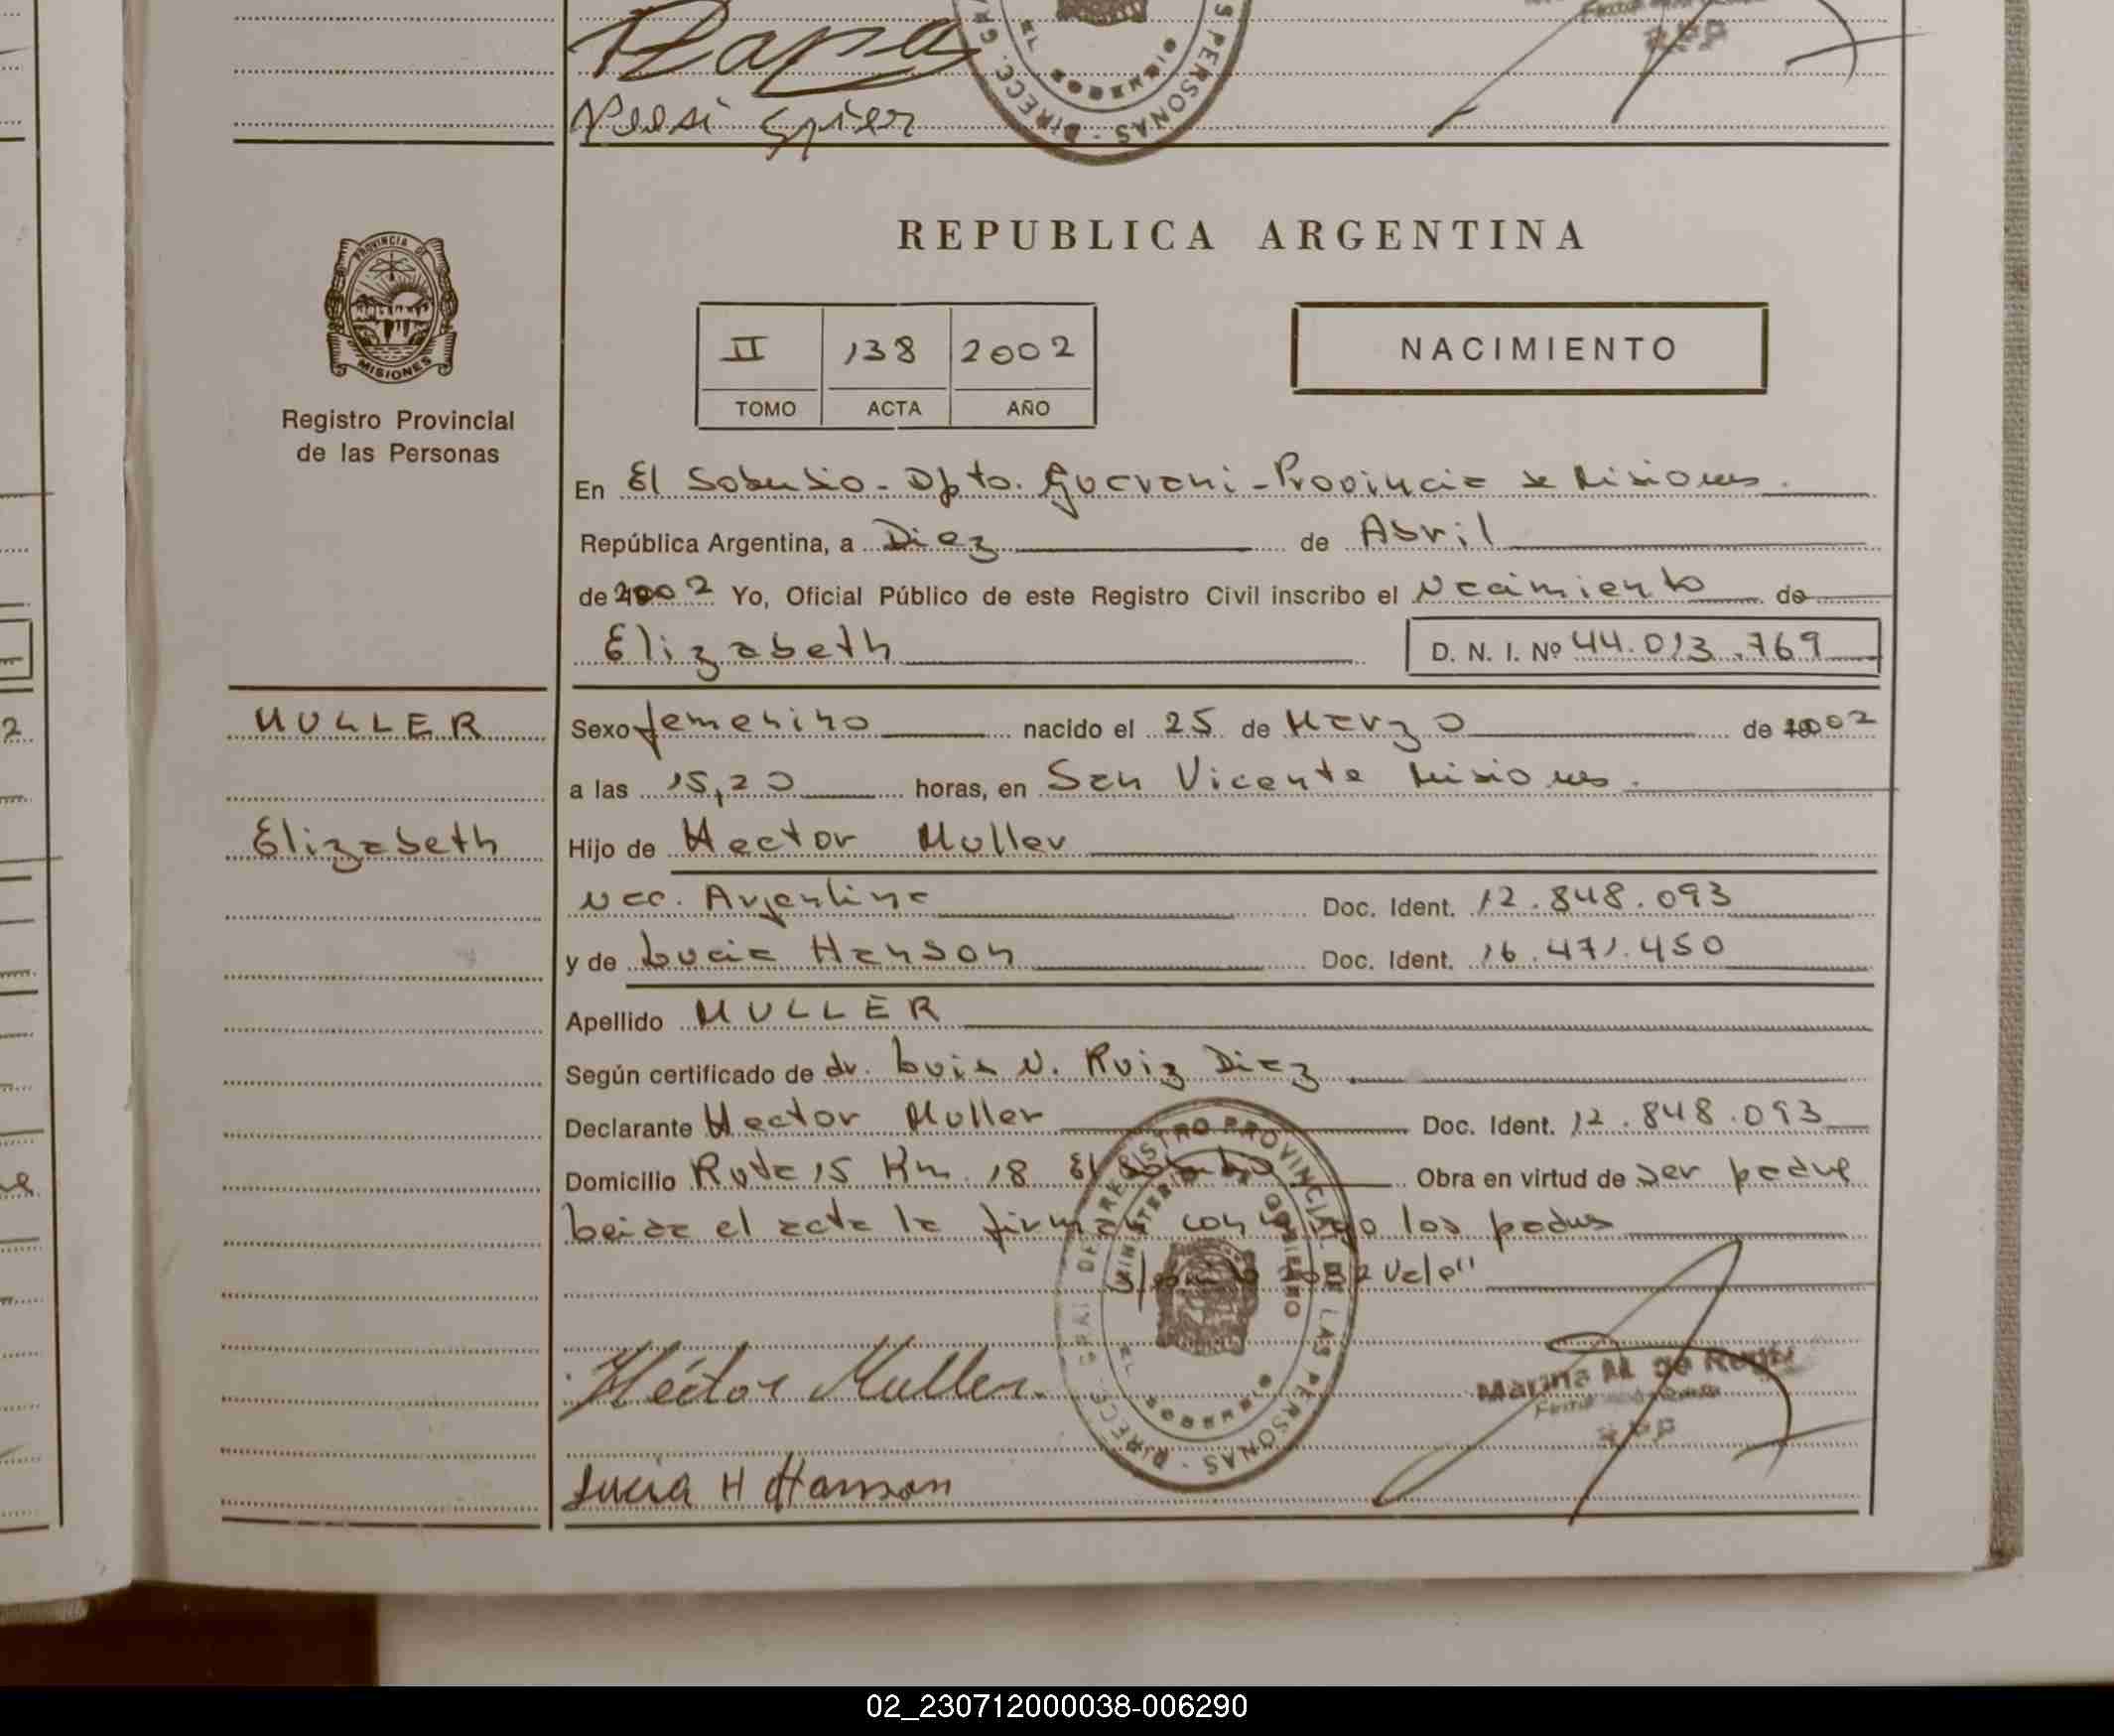 Nelsi Spier
DIRECC. GRAL.
S PERSONAS
REPUBLICA ARGENTINA
PROVINCIA DE
MISIONES
Registro Provincial
de las Personas
II 138 2002
TOMO ACTA AÑO
NACIMIENTO
En El Soberbio - Dpto. Guarani - Provincia de Misiones.
República Argentina, a Diez de Abril
de 2002 Yo, Oficial Público de este Registro Civil inscribo el Nacimiento de
Elizabeth D. N. I. Nº 44.013.769
MULLER
Sexo femenino nacido el 25 de Marzo de 2002
a las 15,20 horas, en San Vicente Misiones.
Elizabeth
Hijo de Hector Muller
Nac. Argentina Doc. Ident. 12.848.093
y de Lucia Hanson Doc. Ident. 16.471.450
Apellido MULLER
Según certificado de dr. Luis N. Ruiz Diaz
Declarante Hector Muller Doc. Ident. 12.848.093
Domicilio Ruta 15 Km. 18 El Soberbio Obra en virtud de ser padre
Leida el acta la firman conmigo los padres
2002 Vale"
DIRECC. GRAL. DEL REGISTRO PROVINCIAL DE LAS PERSONAS
MINISTERIO DE GOBIERNO
EL SOBERBIO
Héctor Muller
Marina M. de
RPP
Lucia H Hanson
02_230712000038-006290